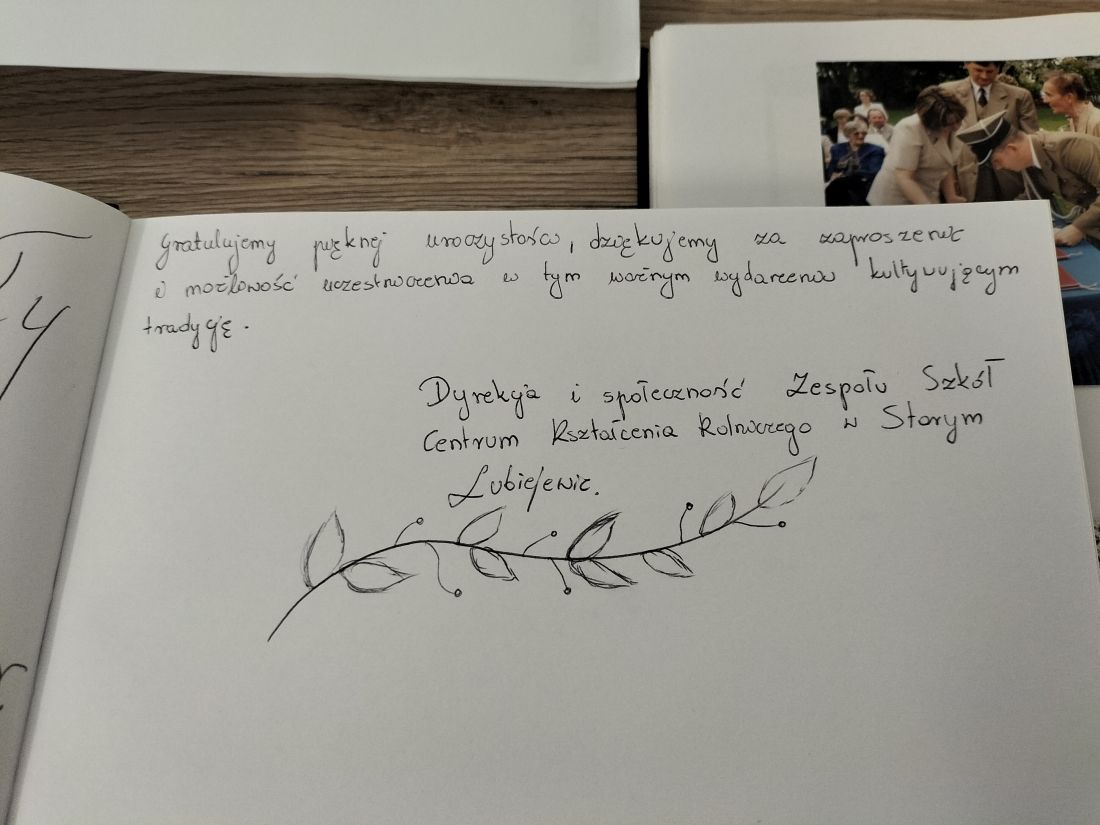 Gratulujemy pięknej uroczystości, dziękujemy za zaproszenie
i możliwość uczestniczenia w tym ważnym wydarzeniu kultywującym
tradycję.
Dyrekcja i społeczność Zespołu Szkół
Centrum Kształcenia Rolniczego w Starym
Lubiejewie.